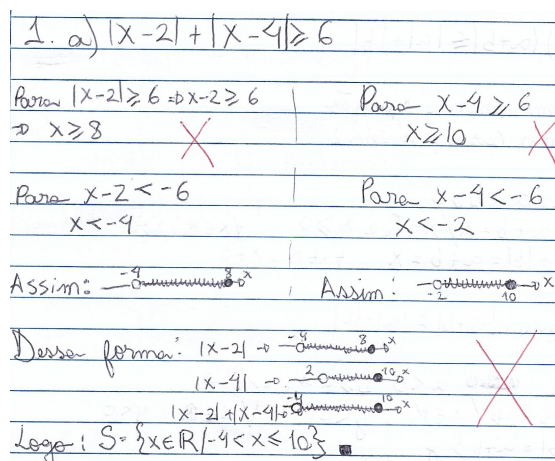 1. a) |x-2| + |x-4| ≥ 6
Para |x-2| ≥ 6 ⇒ x-2 ≥ 6
⇒ x ≥ 8
Para x-4 ≥ 6
x ≥ 10
Para x-2 < -6
x < -4
Para x-4 < -6
x < -2
Assim: -4 8 x
Assim: -2 10 x
Dessa forma: |x-2| → -4 8 x
|x-4| → 2 10 x
|x-2|+|x-4| → -4 10 x
Logo: S = {x∈R/-4 < x ≤ 10} ■